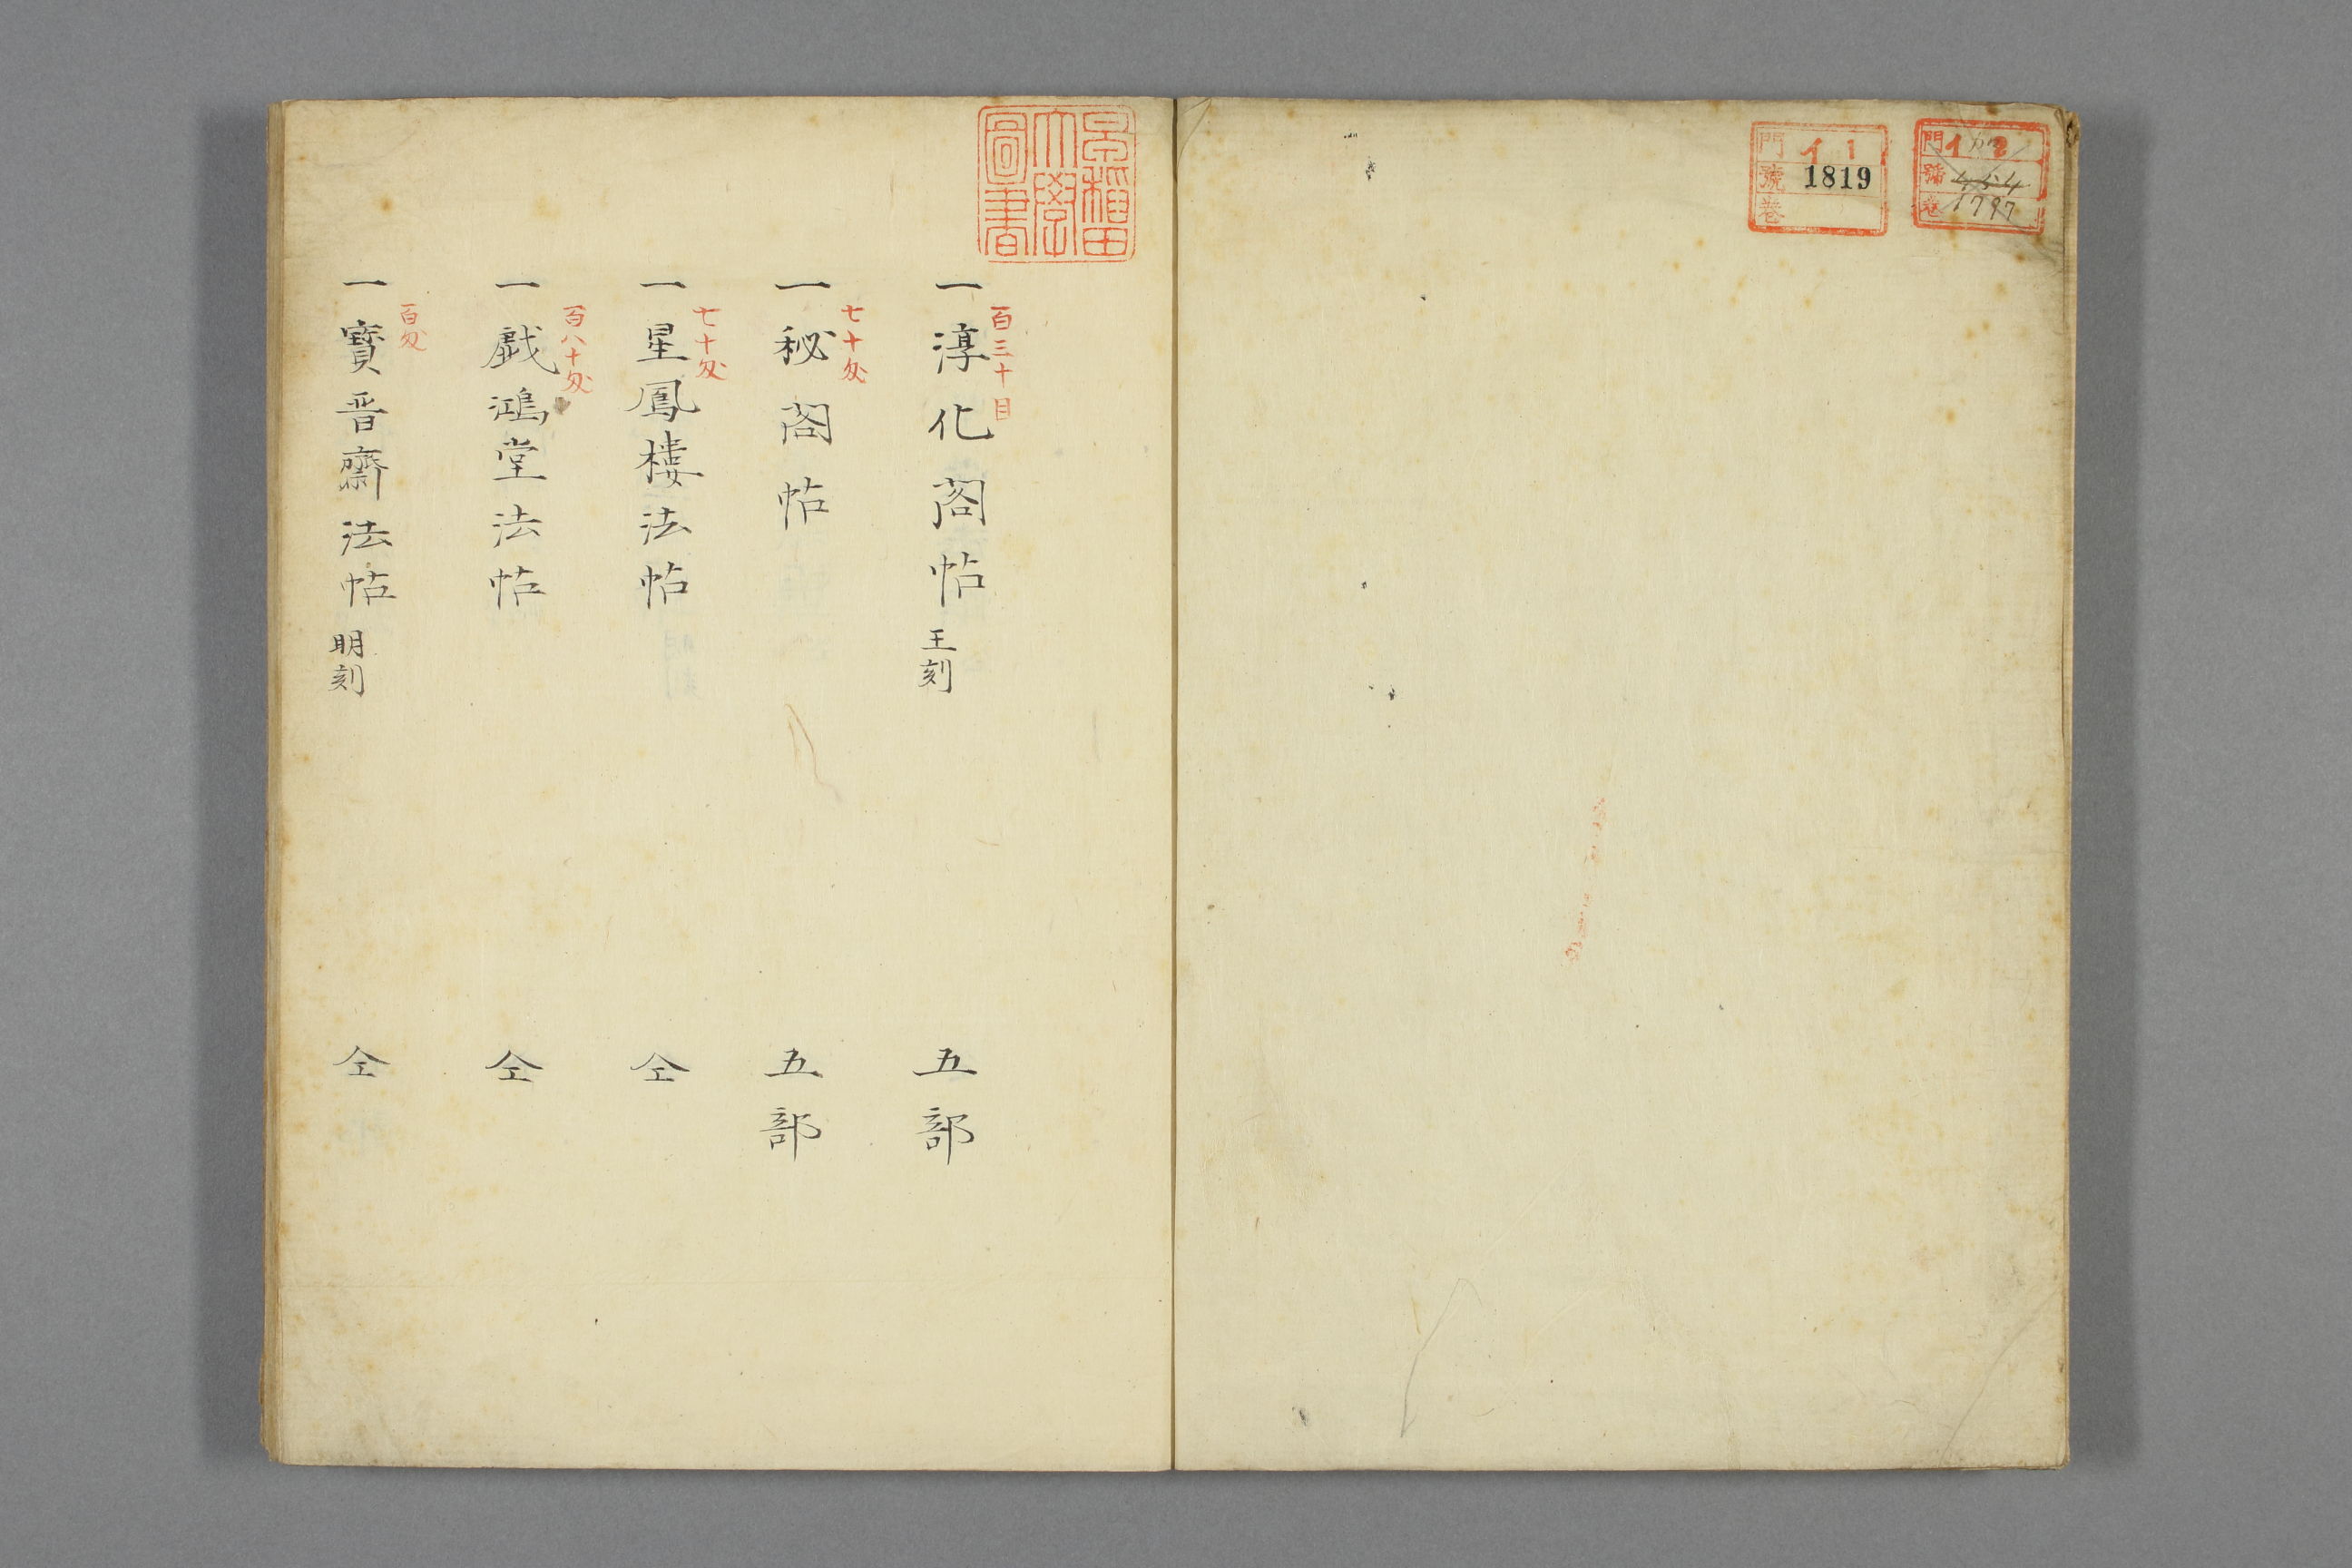 門 イ 1
號 1819
卷
門 イ
號 454
卷 1797
早稲田
大學
圖書
百三十目
一淳化閣帖 王刻 五部
七十匁
一秘閣帖 五部
七十匁
一星鳳樓法帖 仝
百八十匁
一戯鴻堂法帖 仝
百匁
一寳晋齋法帖 明刻 仝